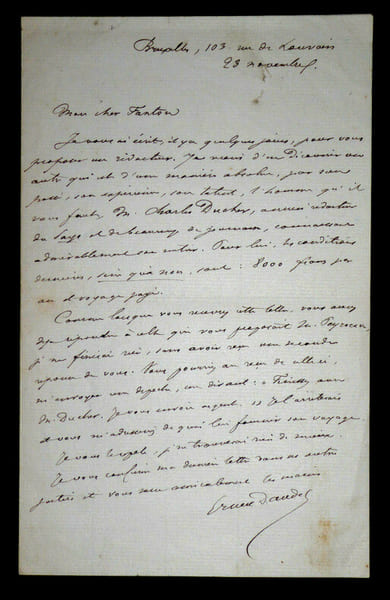 Bruxelles, 103 rue de Louvain
23 novembre.
Mon cher Fanton
Je vous ai écrit, il y a quelques jours, pour vous
proposer un rédacteur. Je viens d'en découvrir un
autre qui est d'une manière absolue, par son
passé, son expérience, son talent, l'homme qu'il
vous faut, M. Charles Ducher, ancien rédacteur
du Pays et de beaucoup de journaux, connaissant
admirablement son métier. Pour lui, les conditions
dernières, sine qua non, sont : 8000 francs par
an et voyage payé.
Comme lorsque vous recevrez cette lettre, vous aurez
déjà répondu à celle qui vous proposait de
je ne finirai rien, sans avoir reçu une seconde
réponse de vous. Vous pourriez au reçu de celle-ci,
m'envoyer une dépêche, en disant : Finissez avec
M. Ducher. Je vous envoie argent. et
et vous m'adresserez de quoi lui fournir son voyage.
Je vous le répète, je ne trouverai rien de mieux.
Je vous confirme ma dernière lettre dans ses autres
parties et vous serre amicalement les mains
Ernest Daudet